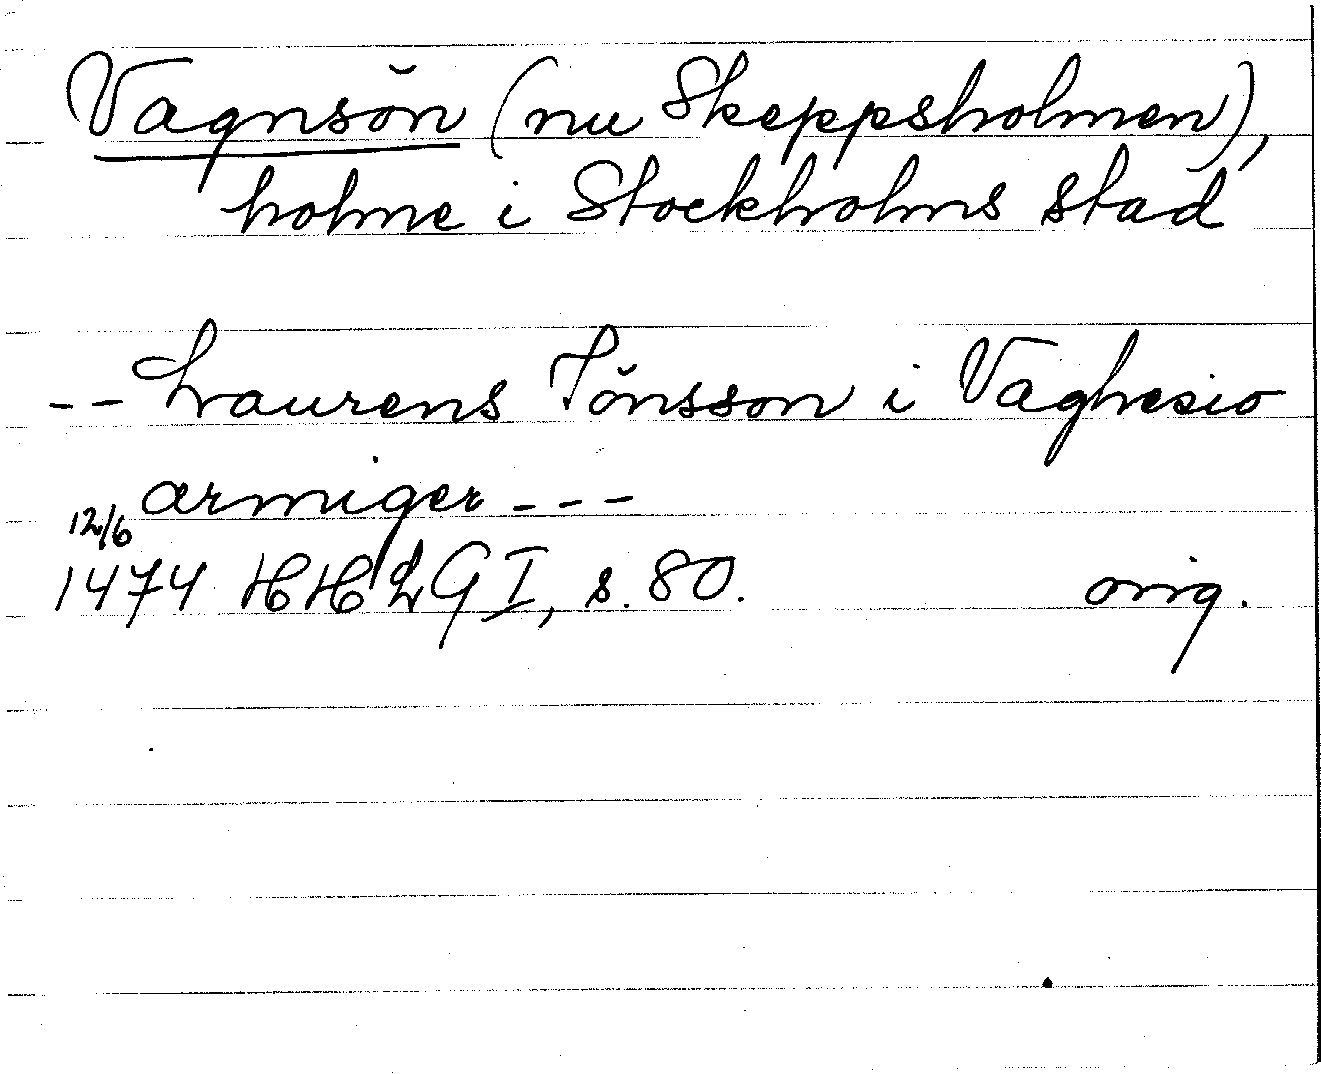 Vagnsön (nu Skeppsholmen),
holme i Stockholms stad
-- Laurens Jönsson i Vaghesio
armiger ---
12/6
1474 HHLG I, s. 80. orig.